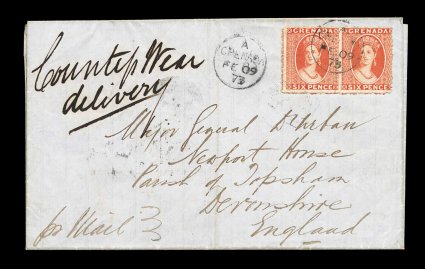 Countess Wear
delivery
A
GRENADA
FE 09
73
GRENADA
GRENADA
SIX PENCE
SIX PENCE
09
73
Major General D'Urban
Newport House
Parish of Topsham
Devonshire
England
per Mail